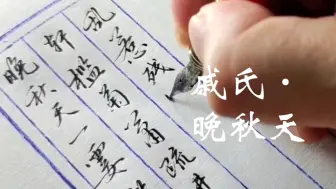 晚秋天一霎
轩槛菊萧疏井
乱惹残
戚氏·
晚秋天